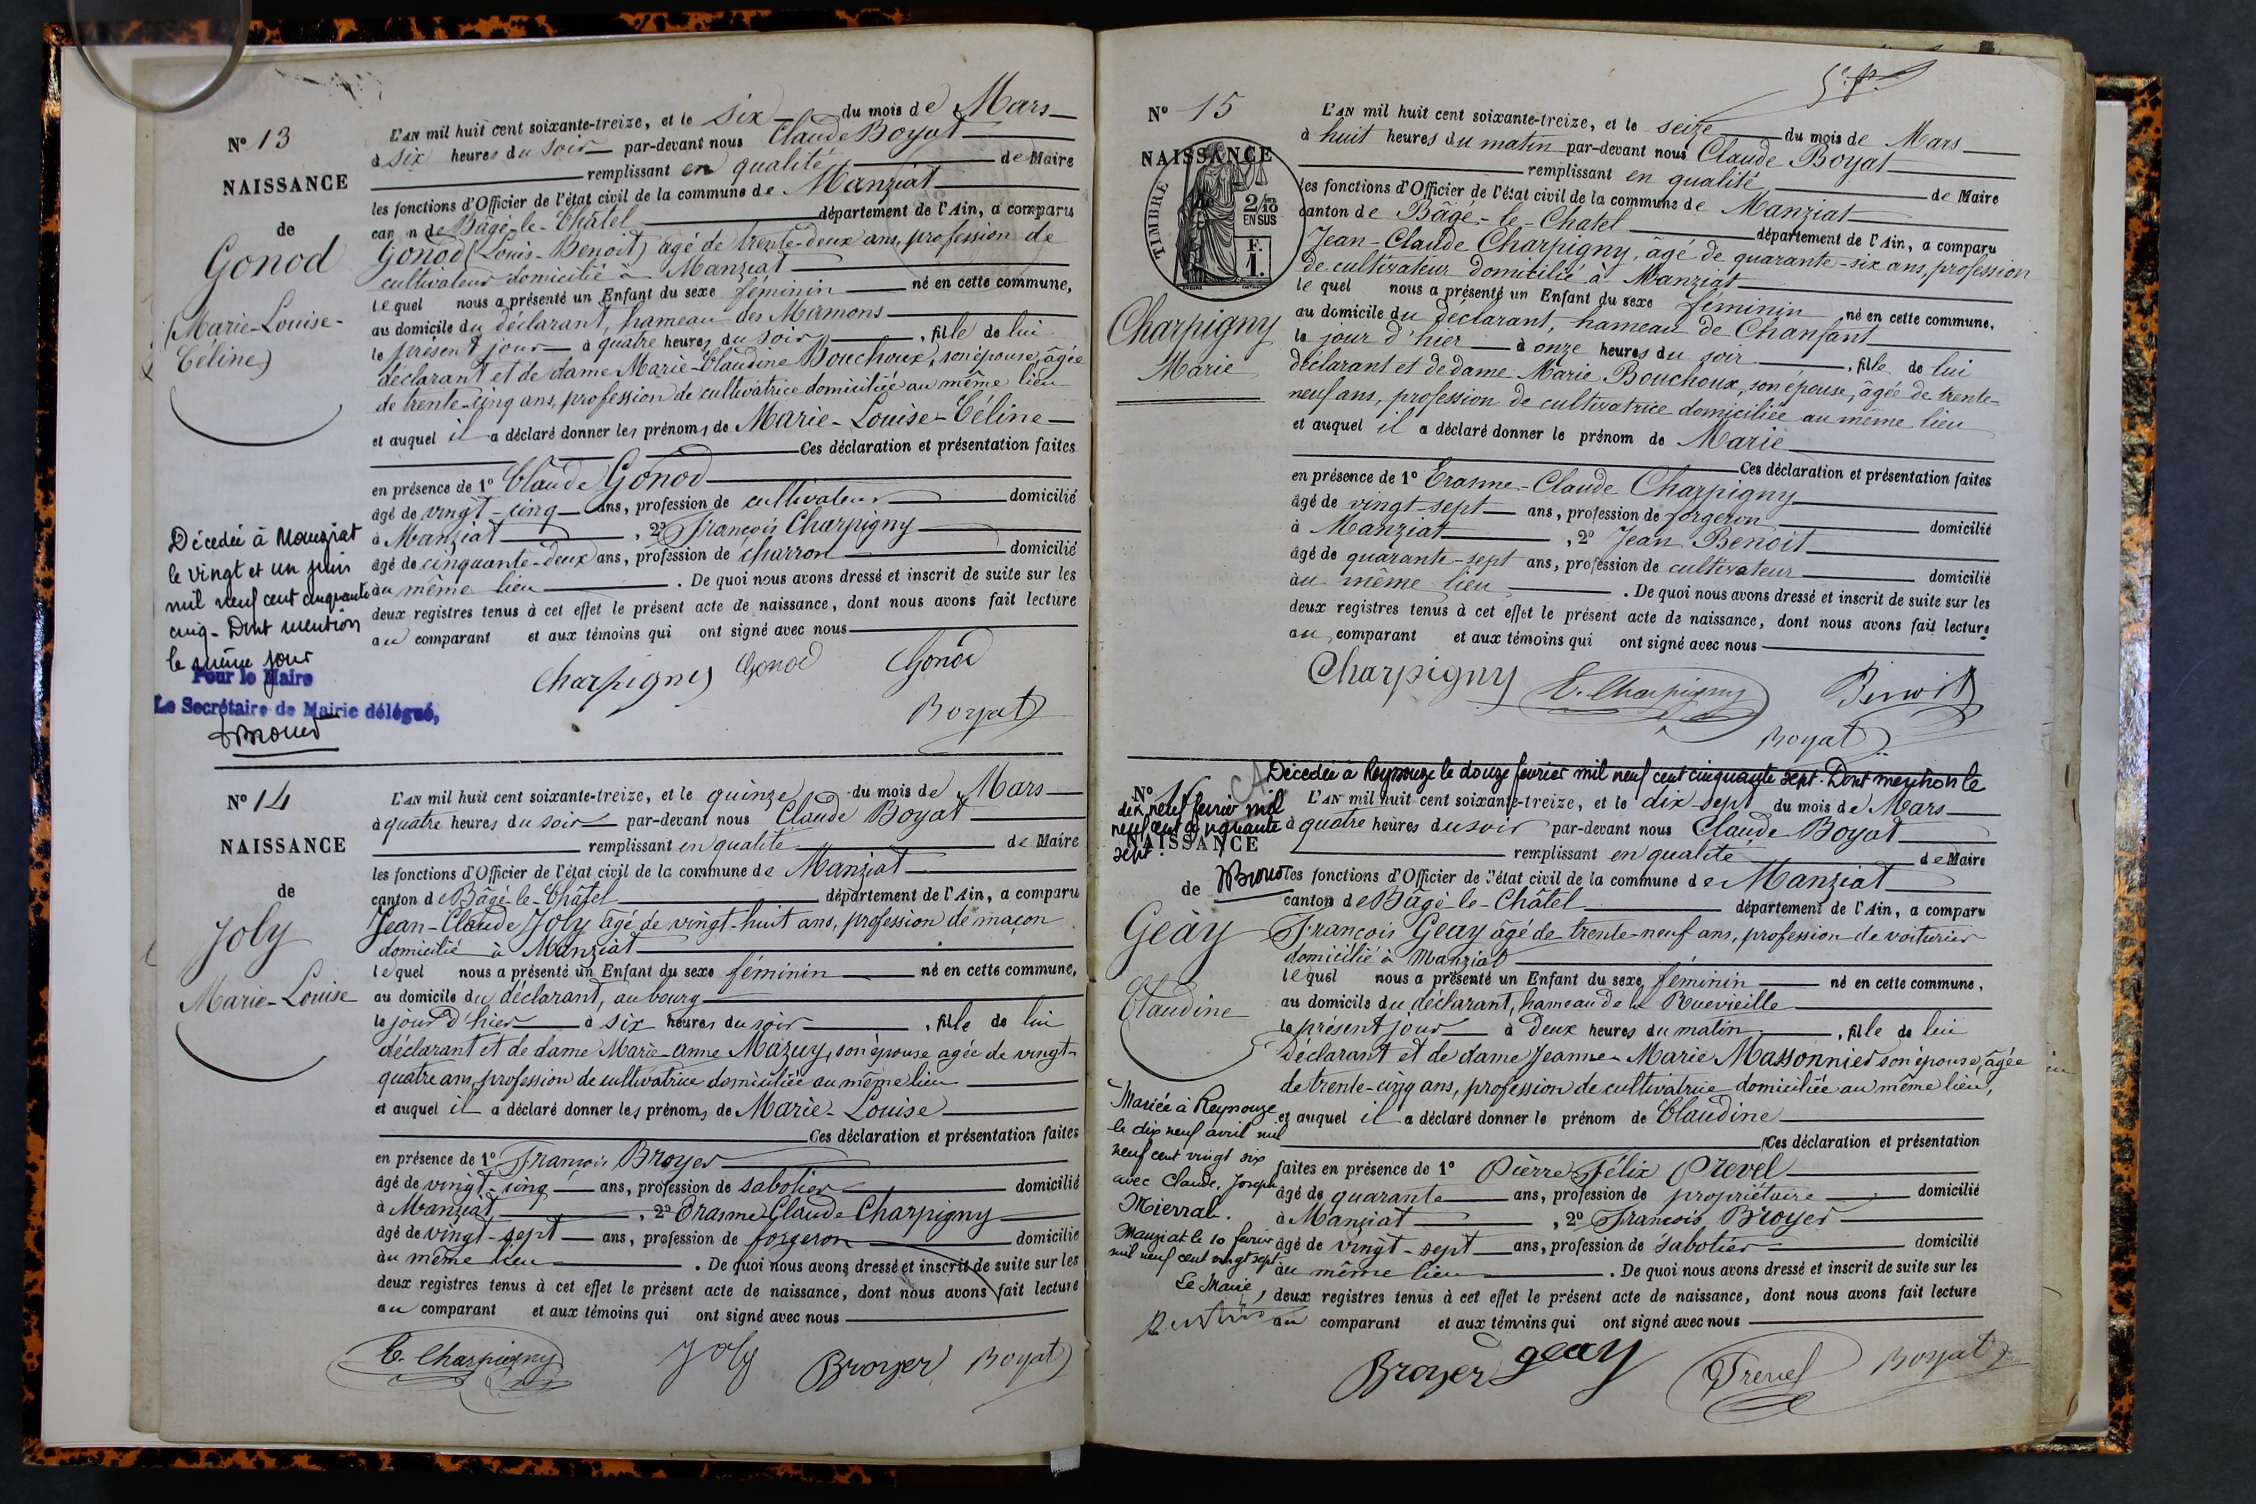 N° 13
NAISSANCE
de
Gonod
(Marie-Louise-
Céline)
L'AN mil huit cent soixante-treize, et le six du mois de Mars
à six heures du soir par-devant nous Claude Boyat
remplissant en qualité de Maire
les fonctions d'Officier de l'état civil de la commune de Manziat
can n de Bâgé-le-Châtel département de l'Ain, a comparu
Gonod (Louis-Benoit) âgé de trente-deux ans, profession de
cultivateur domicilié à Manziat
lequel nous a présenté un Enfant du sexe féminin né en cette commune,
au domicile du déclarant, hameau des Mamons
le présent jour à quatre heures du soir, fille de lui
déclarant et de dame Marie-Claudine Bouchoux, son épouse, âgée
de trente-cinq ans, profession de cultivatrice domiciliée au même lieu
et auquel il a déclaré donner les prénoms de Marie-Louise-Céline
Ces déclaration et présentation faites
en présence de 1° Claude Gonod
âgé de vingt-cinq ans, profession de cultivateur domicilié
à Manziat, 2° François Charpigny
âgé de cinquante-deux ans, profession de charron domicilié
au même lieu. De quoi nous avons dressé et inscrit de suite sur les
deux registres tenus à cet effet le présent acte de naissance, dont nous avons fait lecture
au comparant et aux témoins qui ont signé avec nous
Charpigny Gonod Gonod
Boyat
Décédée à Manziat
le vingt et un juin
mil neuf cent cinquante
cinq - Dont mention
le même jour
Pour le Maire
Le Secrétaire de Mairie délégué,
N° 14
NAISSANCE
de
Joly
Marie-Louise
L'AN mil huit cent soixante-treize, et le quinze du mois de Mars
à quatre heures du soir par-devant nous Claude Boyat
remplissant en qualité de Maire
les fonctions d'Officier de l'état civil de la commune de Manziat
canton de Bâgé-le-Châtel département de l'Ain, a comparu
Jean-Claude Joly âgé de vingt-huit ans, profession de maçon
domicilié à Manziat
lequel nous a présenté un Enfant du sexe féminin né en cette commune,
au domicile du déclarant, au bourg
le jour d'hier à six heures du soir, fille de lui
déclarant et de dame Marie-Anne Mazuy, son épouse âgée de vingt-
quatre ans, profession de cultivatrice domiciliée au même lieu
et auquel il a déclaré donner les prénoms de Marie-Louise
Ces déclaration et présentation faites
en présence de 1° François Broyer
âgé de vingt-cinq ans, profession de sabotier domicilié
à Manziat, 2° Erasme Claude Charpigny
âgé de vingt-sept ans, profession de forgeron domicilié
au même lieu. De quoi nous avons dressé et inscrit de suite sur les
deux registres tenus à cet effet le présent acte de naissance, dont nous avons fait lecture
au comparant et aux témoins qui ont signé avec nous
E. Charpigny Joly Broyer Boyat
N° 15
NAISSANCE
de
TIMBRE
2/10
EN SUS
F.
1.
Charpigny
Marie
L'AN mil huit cent soixante-treize, et le seize du mois de Mars
à huit heures du matin par-devant nous Claude Boyat
remplissant en qualité de Maire
les fonctions d'Officier de l'état civil de la commune de Manziat
canton de Bâgé-le-Chatel département de l'Ain, a comparu
Jean-Claude Charpigny, âgé de quarante-six ans, profession
de cultivateur domicilié à Manziat
lequel nous a présenté un Enfant du sexe féminin né en cette commune,
au domicile du déclarant, hameau de Chanfant
le jour d'hier à onze heures du soir, fille de lui
déclarant et de dame Marie Bouchoux, son épouse, âgée de trente-
neuf ans, profession de cultivatrice domiciliée au même lieu
et auquel il a déclaré donner le prénom de Marie
Ces déclaration et présentation faites
en présence de 1° Erasme-Claude Charpigny
âgé de vingt-sept ans, profession de forgeron domicilié
à Manziat, 2° Jean Benoit
âgé de quarante-sept ans, profession de cultivateur domicilié
au même lieu. De quoi nous avons dressé et inscrit de suite sur les
deux registres tenus à cet effet le présent acte de naissance, dont nous avons fait lecture
au comparant et aux témoins qui ont signé avec nous
Charpigny E. Charpigny Benoit
Boyat
Décédée à Reyssouze le douze février mil neuf cent cinquante sept. Dont mention le
dix neuf février mil
neuf cent cinquante
sept.
N°
NAISSANCE
de
Geay
Claudine
L'AN mil huit cent soixante-treize, et le dix-sept du mois de Mars
à quatre heures du soir par-devant nous Claude Boyat
remplissant en qualité de Maire
les fonctions d'Officier de l'état civil de la commune de Manziat
canton de Bâgé-le-Châtel département de l'Ain, a comparu
François Geay âgé de trente-neuf ans, profession de voiturier
domicilié à Manziat
lequel nous a présenté un Enfant du sexe féminin né en cette commune,
au domicile du déclarant, hameau de la Ruevieille
le présent jour à deux heures du matin, fille de lui
déclarant et de dame Jeanne-Marie Massonnier son épouse, âgée
de trente-cinq ans, profession de cultivatrice domiciliée au même lieu,
et auquel il a déclaré donner le prénom de Claudine
Ces déclaration et présentation
faites en présence de 1° Pierre-Félix Prevel
âgé de quarante ans, profession de propriétaire domicilié
à Manziat, 2° François Broyer
âgé de vingt-sept ans, profession de sabotier domicilié
au même lieu. De quoi nous avons dressé et inscrit de suite sur les
deux registres tenus à cet effet le présent acte de naissance, dont nous avons fait lecture
au comparant et aux témoins qui ont signé avec nous
Broyer geay Prevel Boyat
Mariée à Reyssouze
le dix neuf avril mil
neuf cent vingt six
avec Claude, Joseph
Mierral.
Manziat le 10 février
mil neuf cent vingt sept
Le Maire,